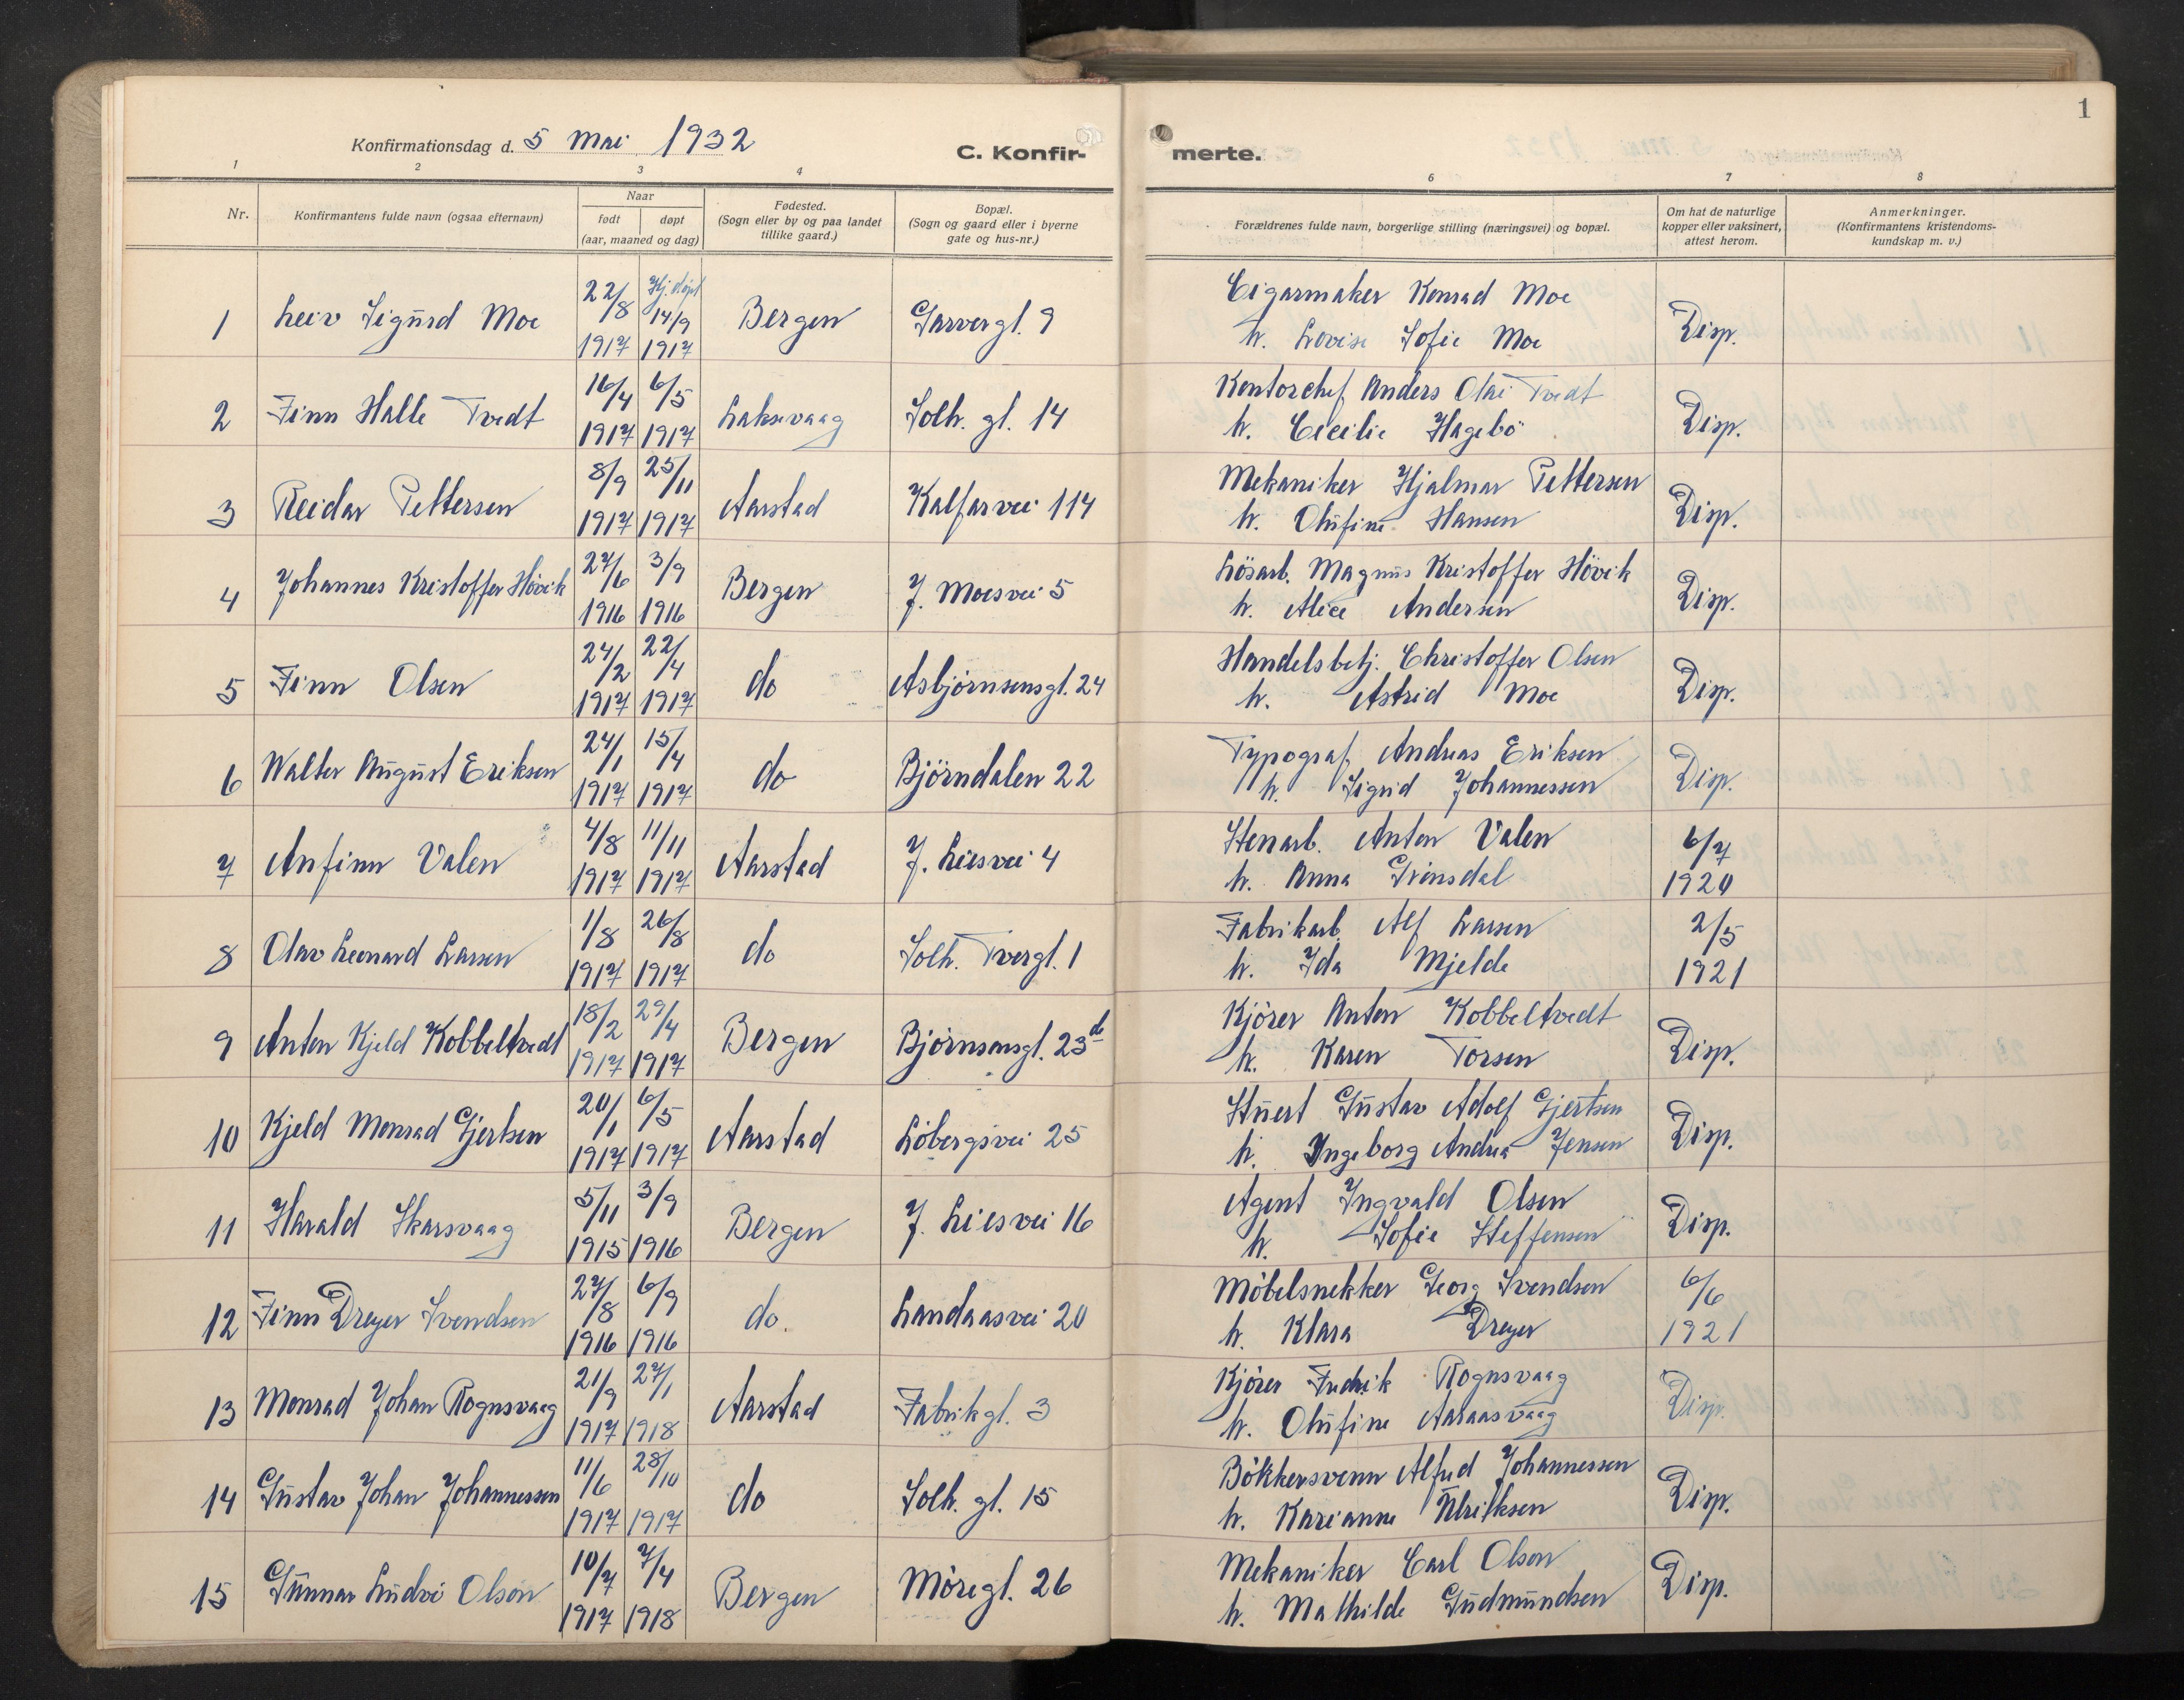 1
Konfirmationsdag d. 5 Mai 1932
C. Konfir- merte.
1 2 3 4 6 7 8
Nr.
Konfirmantens fulde navn (ogsaa efternavn)
Naar
født døpt
(aar, maaned og dag)
Fødested.
(Sogn eller by og paa landet
tillike gaard.)
Bopæl.
(Sogn og gaard eller i byerne
gate og hus-nr.)
Forældrenes fulde navn, borgerlige stilling (næringsvei) og bopæl.
Om hat de naturlige
kopper eller vaksinert,
attest herom.
Anmerkninger.
(Konfirmantens kristendoms-
kundskap m. v.)
22/8 Hj. døpt 14/9 Cigarmaker Konrad Moe
1 Leiv Sigurd Moe 1917 1917 Bergen Garvergt. 9 h. Lovise Sofie Moe Disp.
16/4 6/5 Kontorchef Anders Olai Tvedt
2 Finn Halle Tvedt 1917 1917 Laksevaag Solh. gt. 14 h. Cecilie Hagebö Disp.
8/9 25/11 Mekaniker Hjalmar Pettersen
3 Reidar Pettersen 1917 1917 Aarstad Kalfarvei 114 h. Olufine Hansen Disp.
27/6 3/9 Lösarb. Magnus Kristoffer Hövik
4 Johannes Kristoffer Hövik 1916 1916 Bergen J. Moesvei 5 h. Alice Andersen Disp.
24/2 22/4 Handelsbetj. Christoffer Olsen
5 Finn Olsen 1917 1917 do Asbjörnsensgt. 24 h. Astrid Moe Disp.
24/1 15/4 Typograf Andreas Eriksen
6 Walter August Eriksen 1917 1917 do Björndalen 22 h. Sigrid Johannessen Disp.
4/8 11/11 Stenarb. Anton Valen 6/7
7 Anfinn Valen 1917 1917 Aarstad J. Liesvei 4 h. Anna Grönsdal 1920
1/8 26/8 Fabrikarb. Alf Larsen 2/5
8 Olav Leonard Larsen 1917 1917 do Solh. Tvergt. 1 h. Ida Mjelde 1921
18/2 29/4 Kjörer Anton Kobbeltvedt
9 Anton Kjeld Kobbeltvedt 1917 1917 Bergen Björnsonsgt. 23 h. Karen Torsen Disp.
20/1 6/5 Stuert Gustav Adolf Gjertsen
10 Kjeld Monrad Gjertsen 1917 1917 Aarstad Löbergsvei 25 h. Ingeborg Andrea Jensen Disp.
5/11 3/9 Agent Ingvald Olsen
11 Harald Skarsvaag 1915 1916 Bergen J. Liesvei 16 h. Sofie Steffensen Disp.
27/8 6/9 Möbelsnekker Georg Svendsen 6/6
12 Finn Dreyer Svendsen 1916 1916 do. Landaasvei 20 h. Klara Dreyer 1921
21/9 27/1 Kjörer Fredrik Rognsvaag
13 Monrad Johan Rognsvaag 1917 1918 Aarstad Fabrikgt. 3 h. Olufine Aaraasvaag Disp.
11/6 28/10 Bökkersvenn Alfred Johannessen
14 Gustav Johan Johannessen 1917 1917 do Solh. gt. 15 h. Karianne Ulriksen Disp.
10/7 7/4 Mekaniker Carl Olson
15 Gunnar Ludvi Olson 1917 1918 Bergen Möregt. 26 h. Mathilde Gudmundsen Disp.